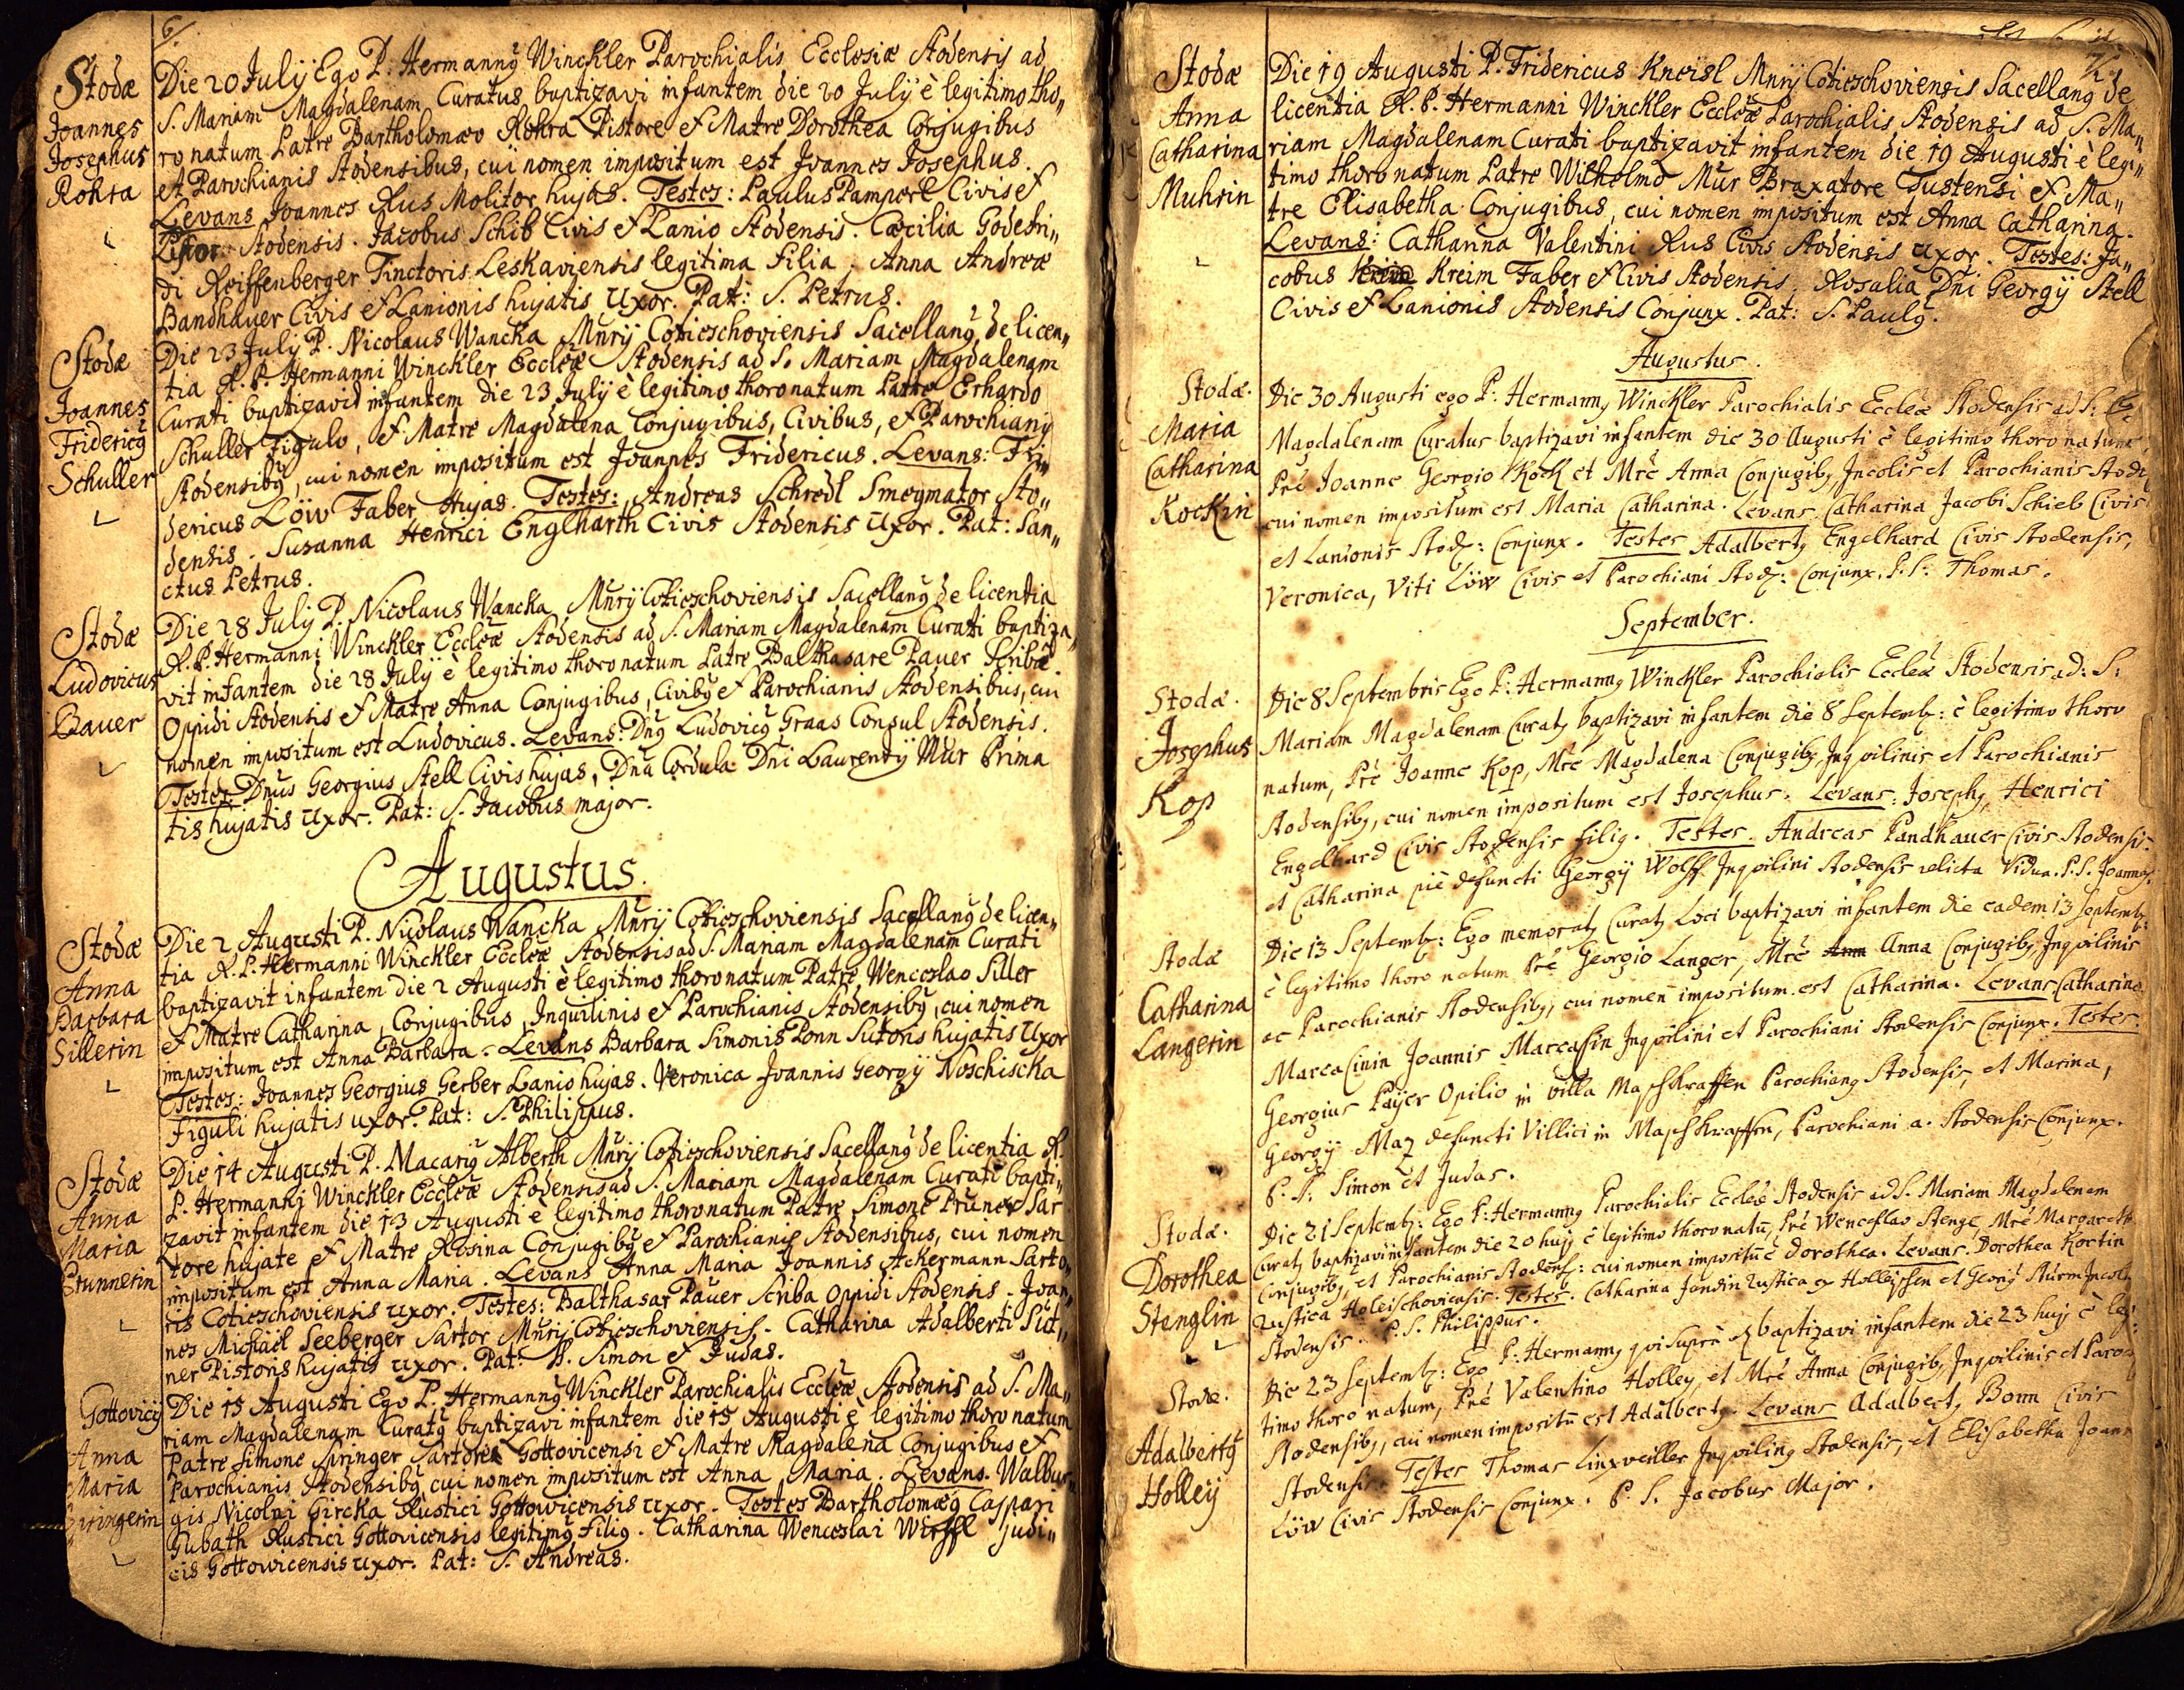 6/
Stodæ
Joannes
Josephus
Rohra
Die 20 July Ego P. Hermannꝰ Winckler Parochialis Ecclesiæ Stodensis ad
S. Mariam Magdalenam Curatus baptizavi infantem die 20 July è legitimo tho„
ro natum Patre Bartholomæo Rohra Pistore et Matre Dorothea Conjugibus
et Parochianis Stodensibus, cui nomen impositum est Joannes Josephus.
Levans Joannes Rus Molitor hujas. Testes: Paulus Pamperl Civis et
Pistor Stodensis. Jacobus Schib Civis et Lanio Stodensis. Cæcilia Godefri„
di Reiffenberger Tinctoris Leskaviensis legitima filia, Anna Andreæ
Bandhauer Civis et Lanionis hujatis Uxor. Pat: S. Petrus.
Stodæ
Joannes
Fridericꝰ
Schuller
Die 23 July P. Nicolaus Wancka Mnrij Cotieschoviensis Sacellanꝰ de licen„
tia R. P. Hermanni Winckler Eccleæ Stodensis ad S. Mariam Magdalenam
Curati baptizavid infantem die 23 July è legitimo thoro natum Patre Erhardo
Schuller Figulo, et Matre Magdalena Conjugibus, Civibus, et Parochianij
Stodensibꝰ, cui nomen impositum est Joannes Fridericus. Levans: Fri„
dericus Löw Faber Hujas. Testes: Andreas Schredl Smegmator Sto„
densis. Susanna Henrici Englharth Civis Stodensis Uxor. Pat: San„
ctus Petrus.
Stodæ
Ludovicus
Bauer
Die 28 July P. Nicolaus Wancka Mnrij Cotieschoviensis Sacellanꝰ de licentia
R. P. Hermanni Winckler Eccleæ Stodensis ad S. Mariam Magdalenam Curati baptiza„
vit infantem die 28 July è legitimo thoro natum Patre Balthasare Pauer Scribæ
Oppidi Stodensis et Matre Anna Conjugibus, Civibꝰ et Parochianis Stodensibus, cui
nomen impositum est Ludovicus. Levans: Dnꝰ Ludovicꝰ Graas Consul Stodensis.
Testes Dnus Georgius Stell Civis hujas, Dna Cordula Dni Laurentij Mür Prima
tis hujatis Uxor. Pat: S. Jacobus major.
Augustus.
Stodæ
Anna
Barbara
Sillerin
Die 2 Augusti P. Nicolaus Wancka Mnrij Cotieschoviensis Sacellanꝰ de licen„
tia R. P. Hermanni Winckler Eccleæ Stodensis ad S. Mariam Magdalenam Curati
baptizavit infantem die 2 Augusti è legitimo thoro natum Patre Wenceslao Siller
et Matre Catharina, Conjugibus, Inquilinis et Parochianis Stodensibꝰ, cui nomen
impositum est Anna Barbara. Levans Barbara Simonis Ponn Sutoris hujatis Uxor
Testes: Joannes Georgius Gerber Lanio hujas. Veronica Joannis Georgij Noschischka
Figuli hujatis uxor. Pat: S. Philippus.
Stodæ
Anna
Maria
Prunnerin
Die 14 Augusti P. Macariꝰ Alberth Mnrij Cotieschoviensis Sacellanꝰ de licentia R.
P. Hermanni Winckler Eccleæ Stodensis ad S. Mariam Magdalenam Curati bapti„
zavit infantem die 13 Augusti è legitimo thoro natum Patre Simone Pruner Sar
tore hujate et Matre Rosina Conjugibꝰ et Parochianis Stodensibus, cui nomen
impositum est Anna Maria. Levans Anna Maria Joannis Ackermann Sarto„
ris Cotieschoviensis uxor. Testes: Balthasar Pauer Scriba Oppidi Stodensis. Joan„
nes Michäel Seeberger Sartor Mnrij Cotieschoviensis. Catharina Adalberti Sut„
ner Pistoris hujatis uxor. Pat: S. Simon et Judas.
Gottovicij
Anna
Maria
Die 15 Augusti Ego P. Hermannꝰ Winckler Parochialis Eccleæ Stodensis ad S. Ma„
riam Magdalenam Curatꝰ baptizavi infantem die 15 Augusti è legitimo thoro natum
Patre Simone Springer Sartore Gottovicensi et Matre Magdalena Conjugibus et
Parochianis Stodensibꝰ, cui nomen impositum est Anna Maria. Levans. Walbur„
gis Nicolai Gircka Rustici Gottowicensis uxor. Testes Bartholomæꝰ Caspari
Gubath Rustici Gottovicensis legitimꝰ filiꝰ. Catharina Wenceslai Wirffl Judi„
cis Gottowicensis uxor. Pat: S. Andreas.
7.
Stodæ
Anna
Catharina
Muhrin
Die 19 Augusti P. Fridericus Kneisl Mnrij Cotieschoviensis Sacellanꝰ de
licentia R. P. Hermanni Winckler Eccleæ Parochialis Stodensis ad S. Ma„
riam Magdalenam Curati baptizavit infantem die 19 Augusti è legi„
timo thoro natum Patre Wilhelmo Mür Braxatore Tustensi et Ma„
tre Elisabetha Conjugibus, cui nomen impositum est Anna Catharina.
Levans: Catharina Valentini Rus Civis Stodensis Uxor. Testes: Ja„
cobus Kreim Faber et Civis Stodensis. Rosalia Dni Georgij Stell
Civis et Lanionis Stodensis Conjunx. Pat: S. Paulꝰ.
Augustus.
Stodæ.
Maria
Catharina
Kockin
Die 30 Augusti ego P: Hermannꝰ Winckler Parochialis Eccleæ Stodensis ad S:
Magdalenam Curatus baptizavi infantem die 30 Augusti è legitimo thoro natum
Pre Joanne Georgio Kock et Mre Anna Conjugibꝰ, Incolis et Parochianis Stod:
cui nomen impositum est Maria Catharina. Levans Catharina Jacobi Schieb Civis
et Lanionis Stod: Conjunx. Testes Adalbertꝰ Engelhard Civis Stodensis,
Veronica, Viti Löw Civis et Parochiani Stod: Conjunx. P. S: Thomas.
September.
Stodæ.
Josephus
Kop
Die 8 Septembris Ego P: Hermannꝰ Winckler Parochialis Eccleæ Stodensis ad: S:
Mariam Magdalenam Curatꝰ baptizavi infantem die 8 Septemb: è legitimo thoro
natum, Pre Joanne Kop, Mre Magdalena Conjugibꝰ Inquilinis et Parochianis
Stodensibꝰ, cui nomen impositum est Josephus. Levans: Josephꝰ Henrici
Engelhard Civis Stodensis filiꝰ. Testes. Andreas Pandhauer Civis Stodensis
et Catharina piè defuncti Georgij Wolff Inquilini Stodensis relicta Vidua. P. S. Joannes
Stodæ
Catharina
Langerin
Die 13 Septemb: Ego memoratꝰ Curatꝰ Loci baptizavi infantem die eadem 13 Septemb:
è legitimo thoro natum Pre Georgio Langer, Mre Ann Anna Conjugibꝰ Inquilinis
ac Parochianis Stodensibꝰ, cui nomen impositum est Catharina. Levans Catharina
Marcasinin Joannis Marcasin Inquilini et Parochiani Stodensis Conjunx. Testes.
Georgius Payer Opilio in villa Maschkraffen Parochianꝰ Stodensis, et Marina,
Georgij Maz defuncti Villici in Maschkraffen, Parochiani a. Stodensis Conjunx.
P. S. Simon et Judas.
Stodæ.
Dorothea
Stenglin
Die 21 Septemb: Ego P: Hermannꝰ Parochialis Eccleæ Stodensis ad S. Mariam Magdalenam
Curatꝰ baptizavi infantem die 20 hujꝰ è legitimo thoro natū, Pre Wenceslao Stengl, Mre Margareth
Conjugibꝰ, et Parochianis Stodens: cui nomen impositū ē Dorothea. Levans. Dorothea Kortin
Rustica Holeischoviensis. Testes. Catharina Jandin Rustica ex Holleischen et Georg Sturm Incola
Stodensis. P. S. Philippus.
Stodæ.
Adalbertꝰ
Holley
Die 23 Septemb: Ego P: Hermannꝰ qui supra baptizavi infantem die 23 hujꝰ è legi:
timo thoro natum, Pre Valentino Holley, et Mre Anna Conjugibꝰ, Inquilinis et Paroch
Stodensibꝰ, cui nomen impositū est Adalbertꝰ. Levans Adalbertꝰ Bonn Civis
Stodensis. Testes Thomas Linxweiller Inquilinꝰ Stodensis, et Elisabetha Joan
Löw Civis Stodensis Conjunx. P. S. Jacobus Major.